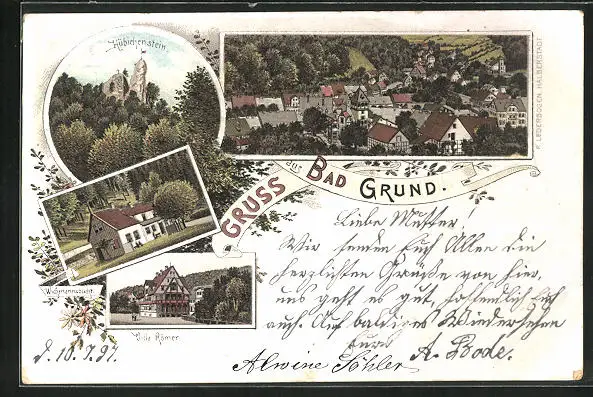 Hübichenstein.
F. LEDERBOGEN, HALBERSTADT
GRUSS aus BAD GRUND.
Wiesmannsbucht.
Villa Römer.
Liebe Mutter!
Wir senden Euch Allen die
herzlichsten Grüße von hier,
uns geht es gut, hoffentlich Euch
auch. Auf baldiges Wiedersehen
Eure A. Bode.
Alwine Söhler
d. 10.7.97.